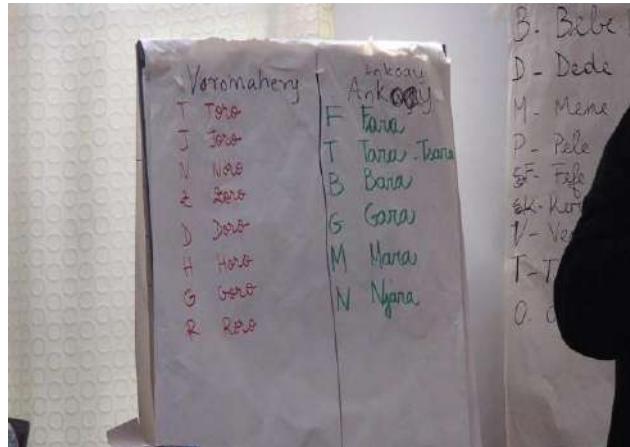 Voromahery
T Toro
J Joro
N Noro
Z Zoro
D Doro
H Horo
G Goro
R Roro
Ankoay
Ankoay
F Fara
T Tara - Tsara
B Bara
G Gara
M Mara
N Njara
B - Bebe
D - Dede
M - Meme
P - Pele
F - Fefe
K -
V -
T -
O -